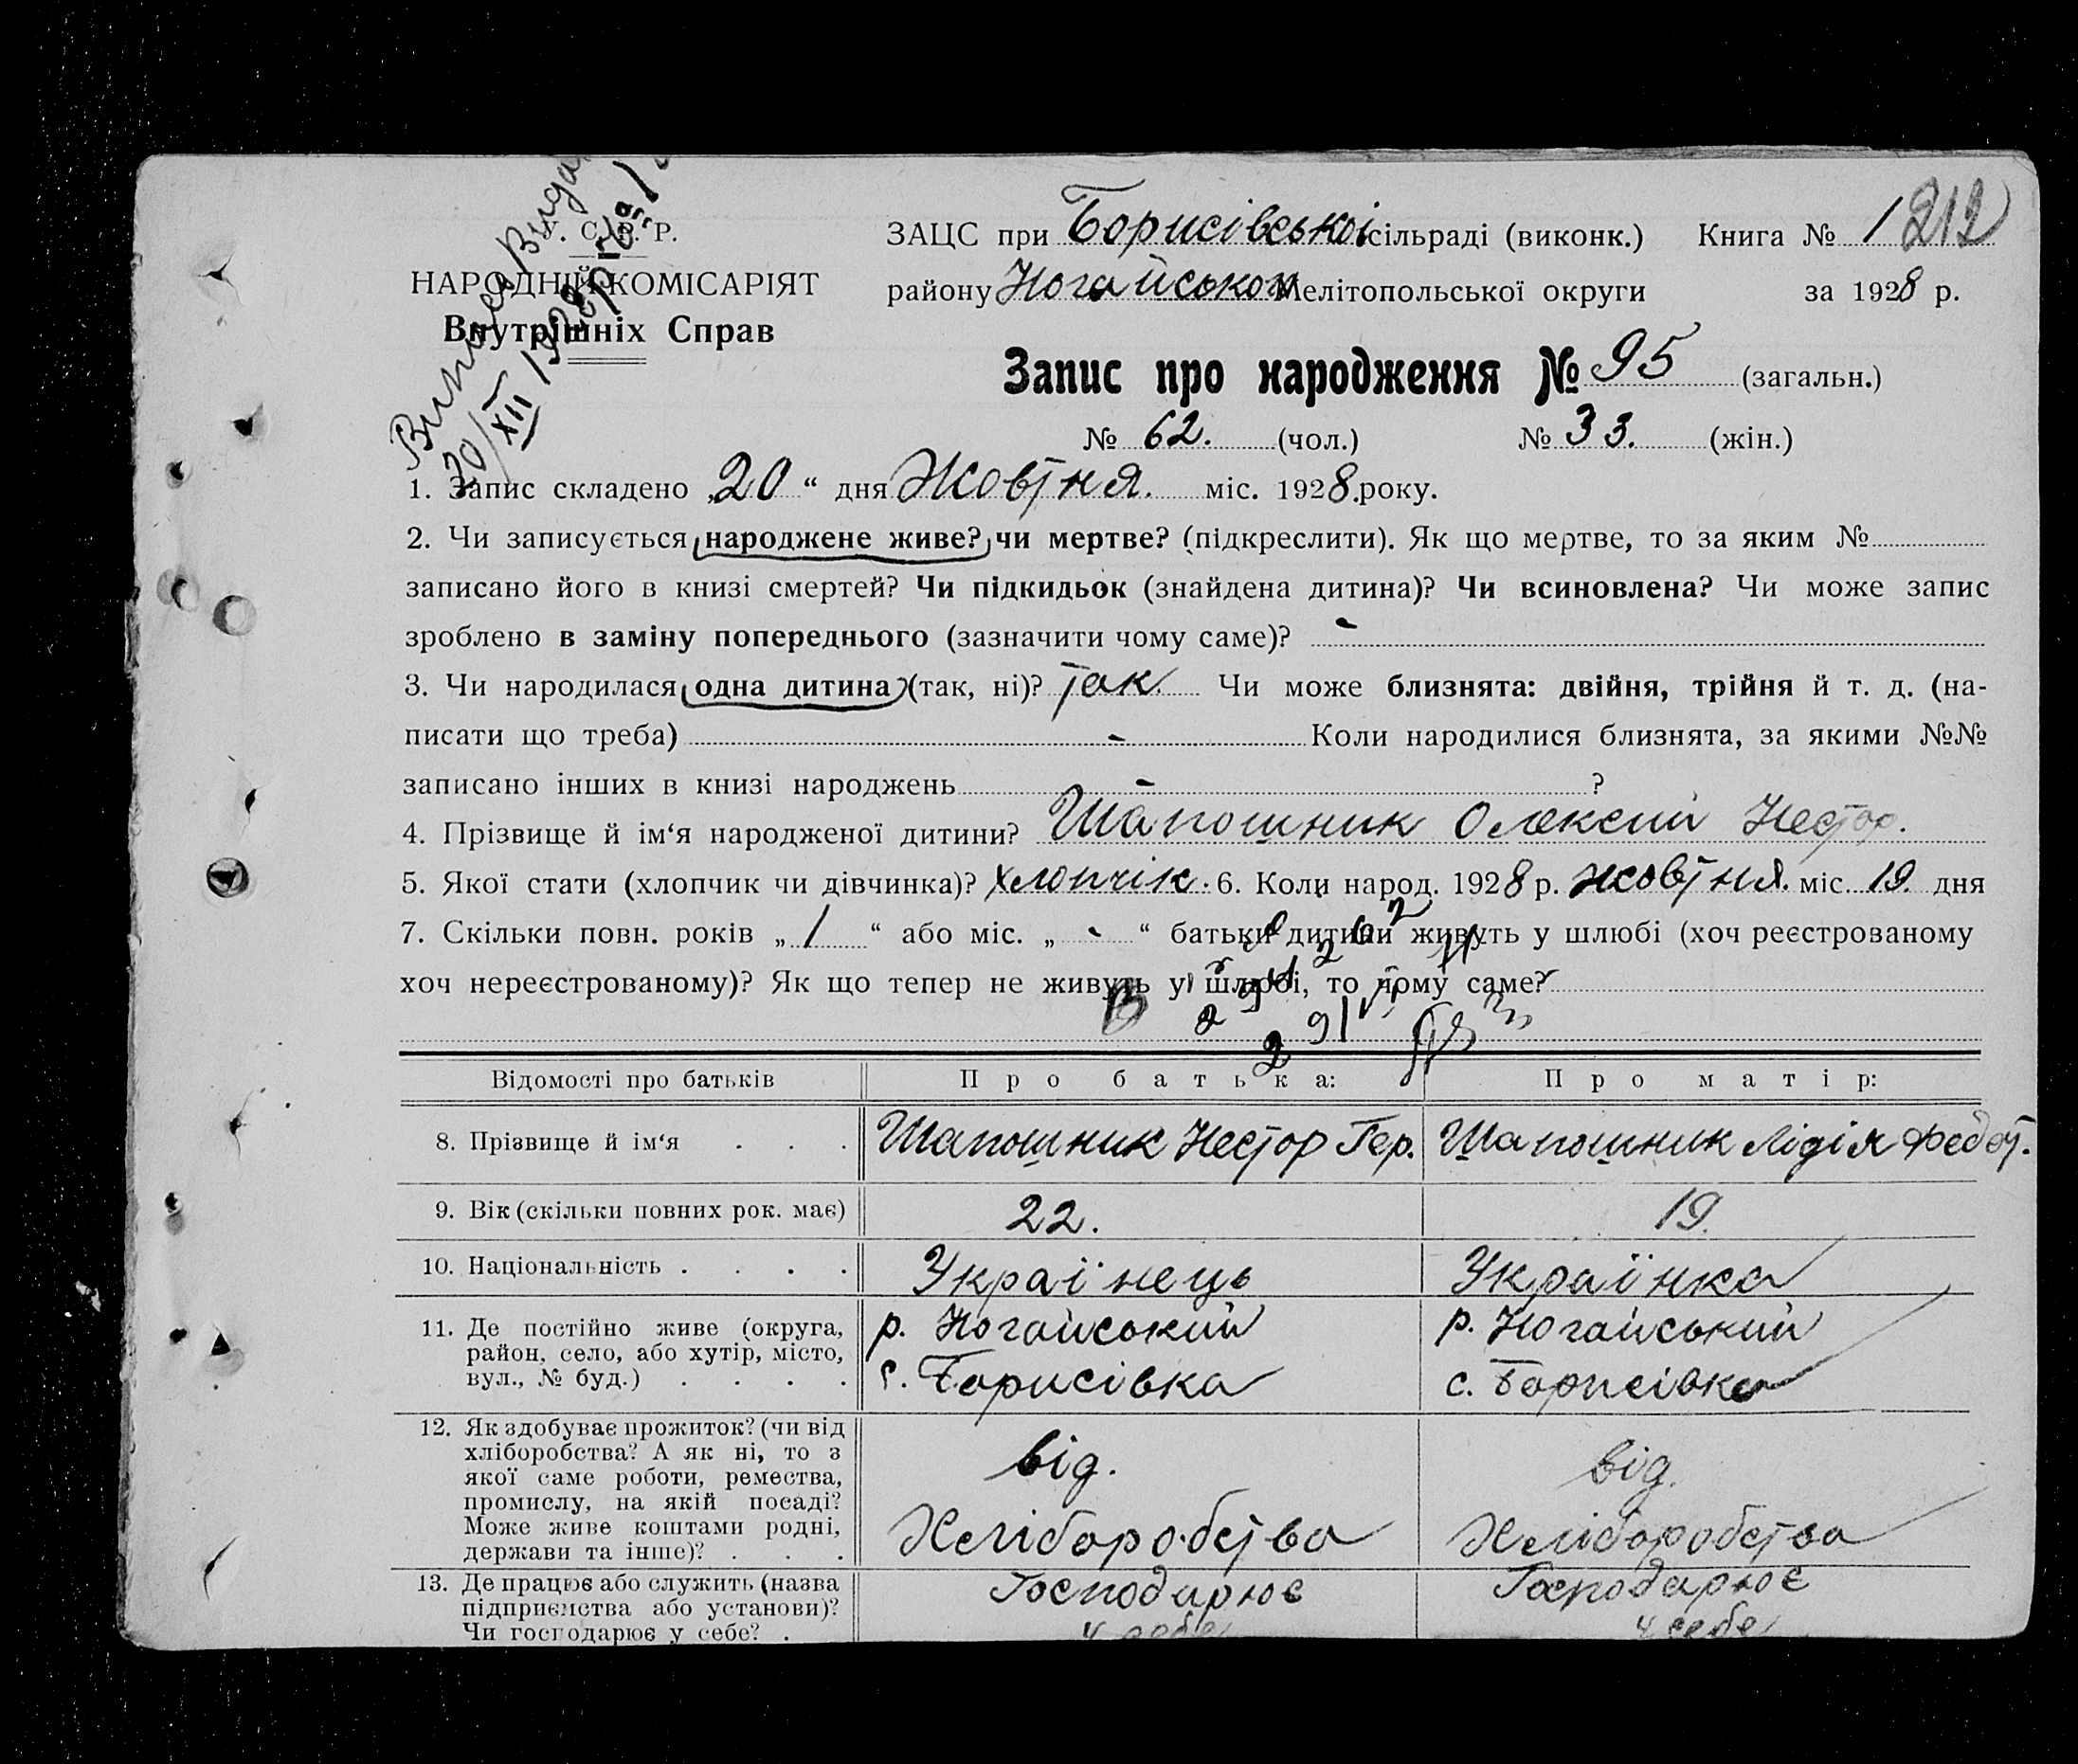 Випис Видан
20/XII 1928 р. №
У. С. Р. Р.
НАРОДНІЙ КОМІСАРІЯТ
Внутрішніх Справ
ЗАЦС при Борисівській сільраді (виконк.) Книга № 1 212
району Ногайського Мелітопольської округи за 1928 р.
Запис про народження № 95 (загальн.)
№ 62. (чол.) № 33. (жін.)
1. Запис складено „20“ дня Жовтня. міс. 1928.року.
2. Чи записується народжене живе? чи мертве? (підкреслити). Як що мертве, то за яким №
записано його в книзі смертей? Чи підкидьок (знайдена дитина)? Чи всиновлена? Чи може запис
зроблено в заміну попереднього (зазначити чому саме)? -
3. Чи народилася одна дитина (так, ні)? так. Чи може близнята: двійня, трійня й т. д. (на-
писати що треба) - Коли народилися близнята, за якими №№
записано інших в книзі народжень - ?
4. Прізвище й ім‘я народженої дитини? Шапошник Олексій Нестор.
5. Якої стати (хлопчик чи дівчинка)? Хлопчік. 6. Коли народ. 1928 р. жовтня. міс. 19. дня
7. Скільки повн. років „ 1 “ або міс. „ - “ батьки дитини живуть у шлюбі (хоч реєстрованому
хоч нереєстрованому)? Як що тепер не живуть у шлюбі, то чому саме?
Відомості про батьків Про батька: Про матір:
8. Прізвище й ім‘я . . . Шапошник Нестор Гер. Шапошник Лідія Федот.
9. Вік (скільки повних рок. має) 22. 19.
10. Національність . . . . Українець Українка
11. Де постійно живе (округа, р. Ногайський р. Ногайський
район, село, або хутір, місто,
вул., № буд.) . . . . с. Борисівка с. Борисівка
12. Як здобуває прожиток? (чи від
хліборобства? А як ні, то з
якої саме роботи, ремества, від. від.
промислу, на якій посаді?
Може живе коштами родні, Хліборобства Хліборобства
держави та інше)? . . .
13. Де працює або служить (назва Господарює Господарює
підприємства або установи)?
Чи господарює у себе? . у себе у себе